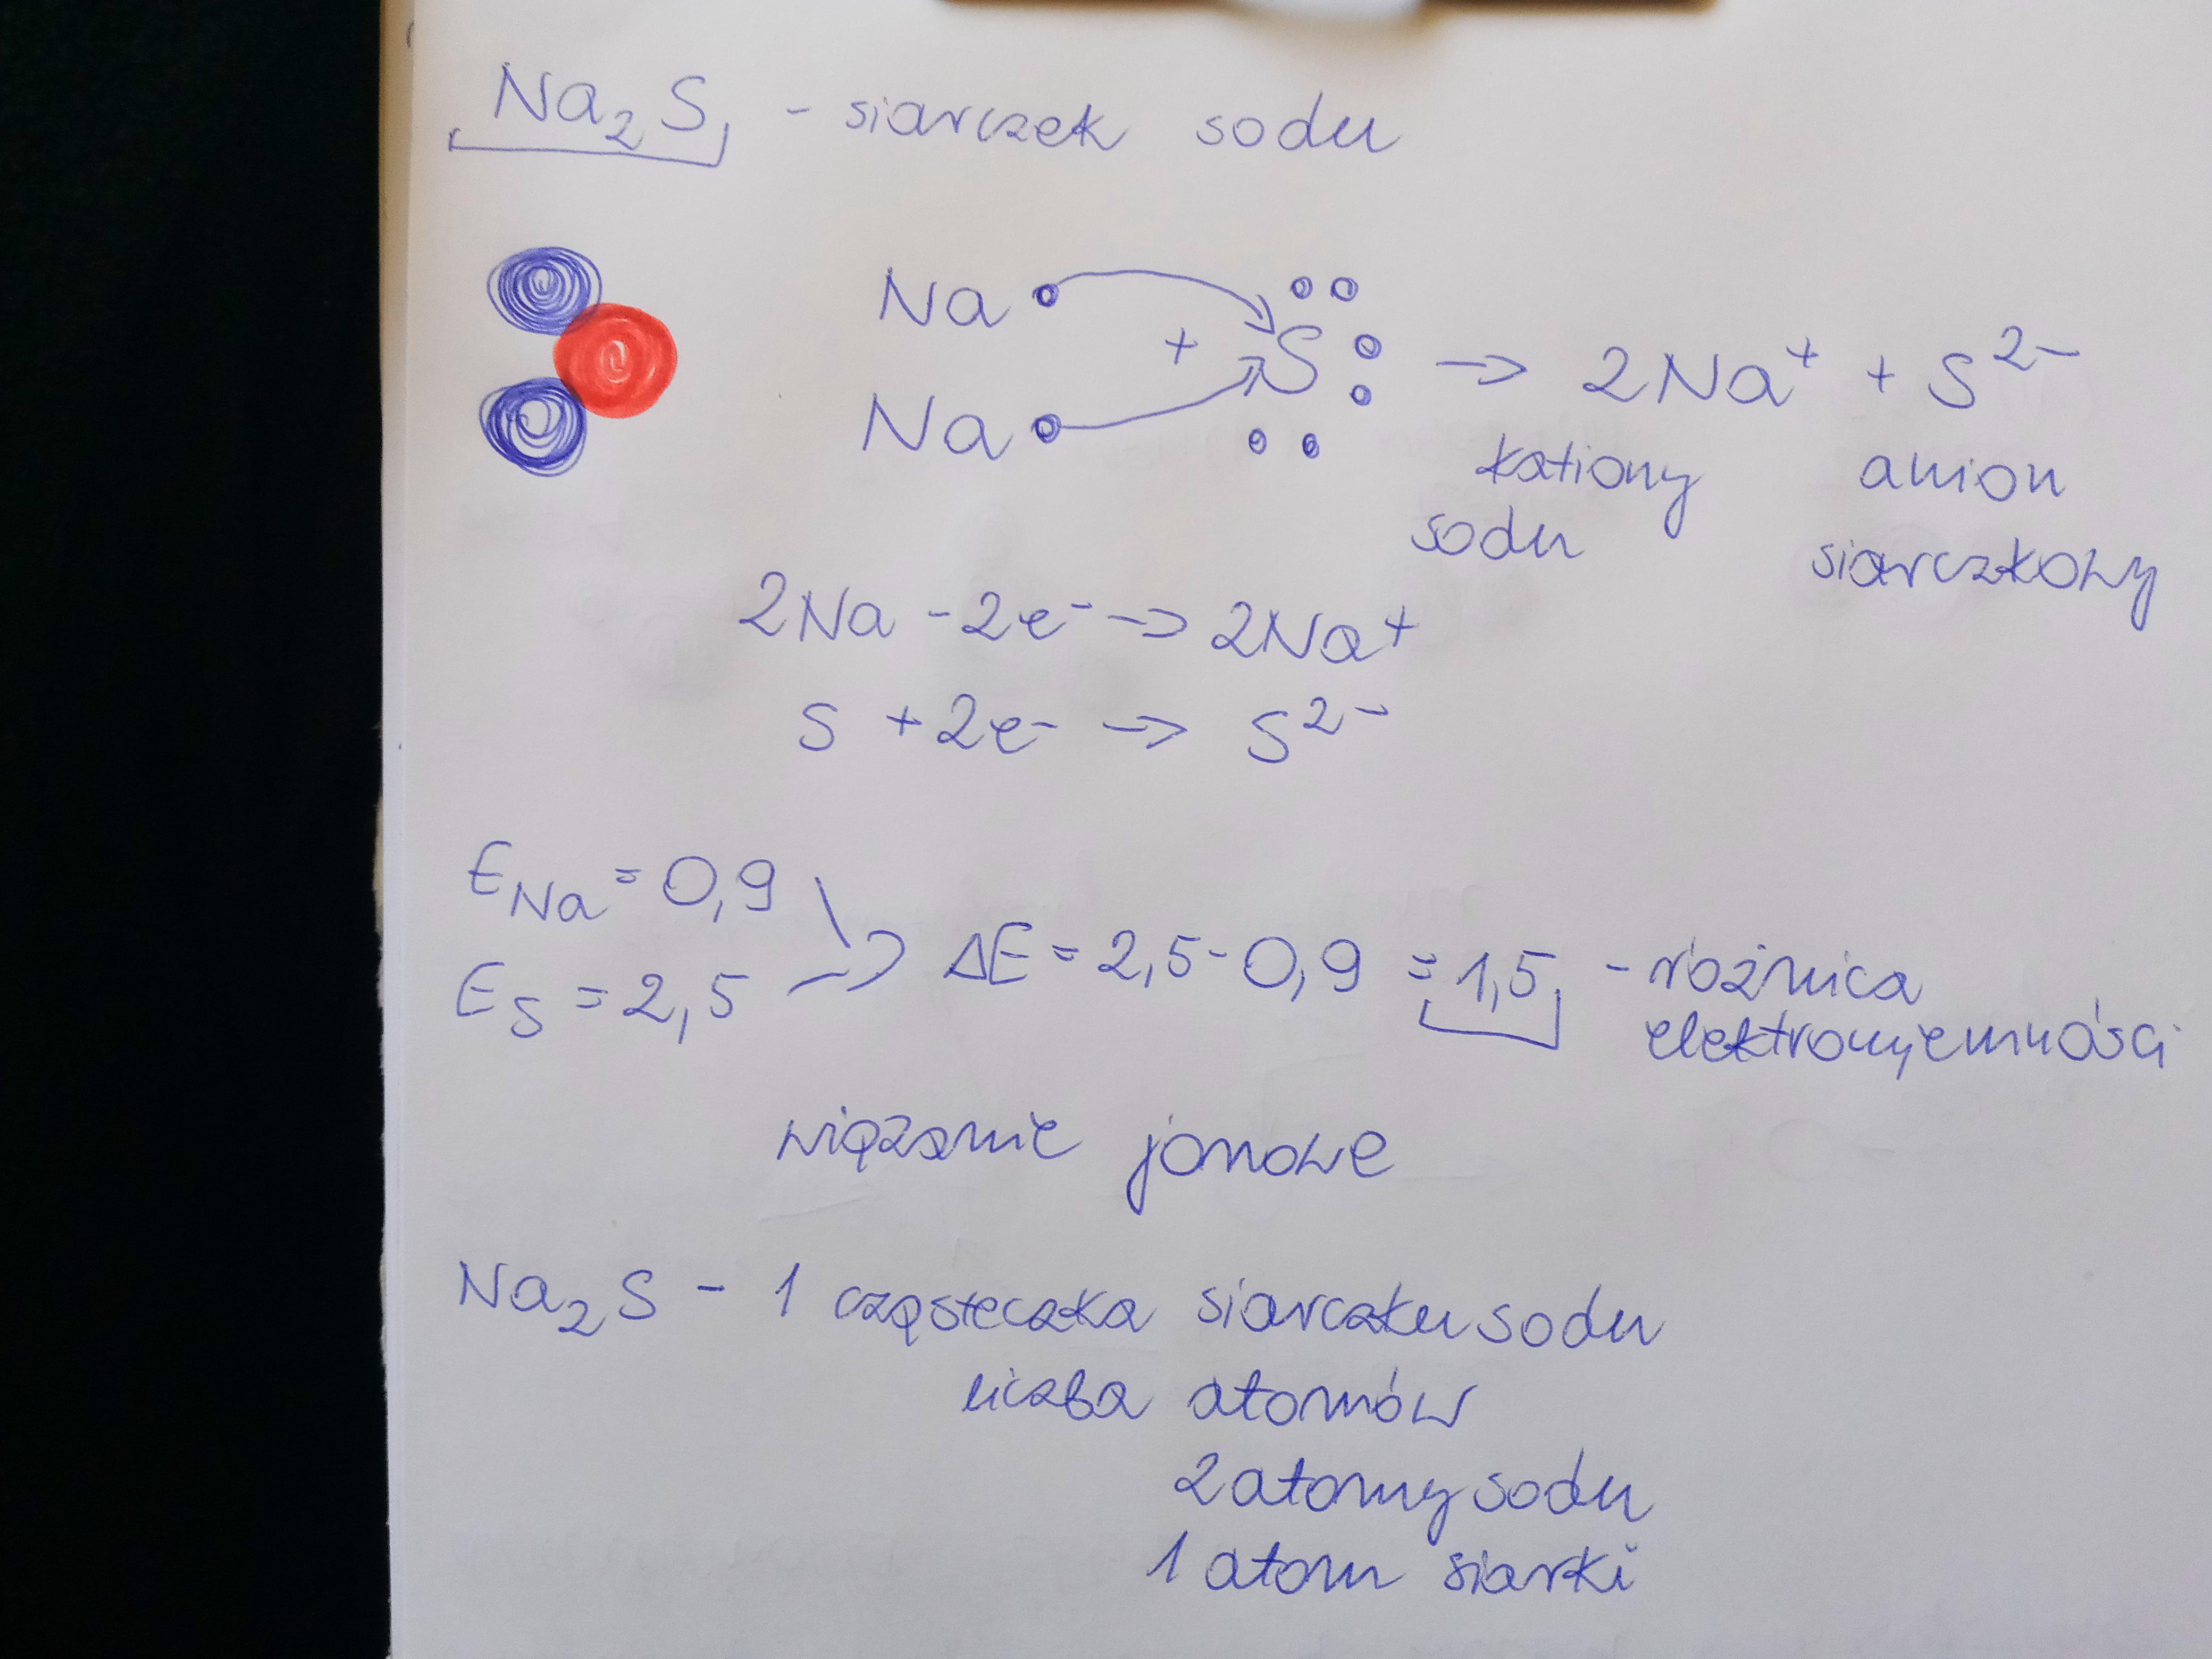 Na₂S - siarczek sodu
Na
+ S → 2Na⁺ + S²⁻
Na
kationy anion
sodu siarczkowy
2Na - 2e⁻ → 2Na⁺
S + 2e⁻ → S²⁻
E_Na = 0,9
ΔE = 2,5 - 0,9 = 1,5 - różnica
E_S = 2,5
elektroujemności
wiązanie jonowe
Na₂S - 1 cząsteczka siarczku sodu
liczba atomów
2 atomy sodu
1 atom siarki